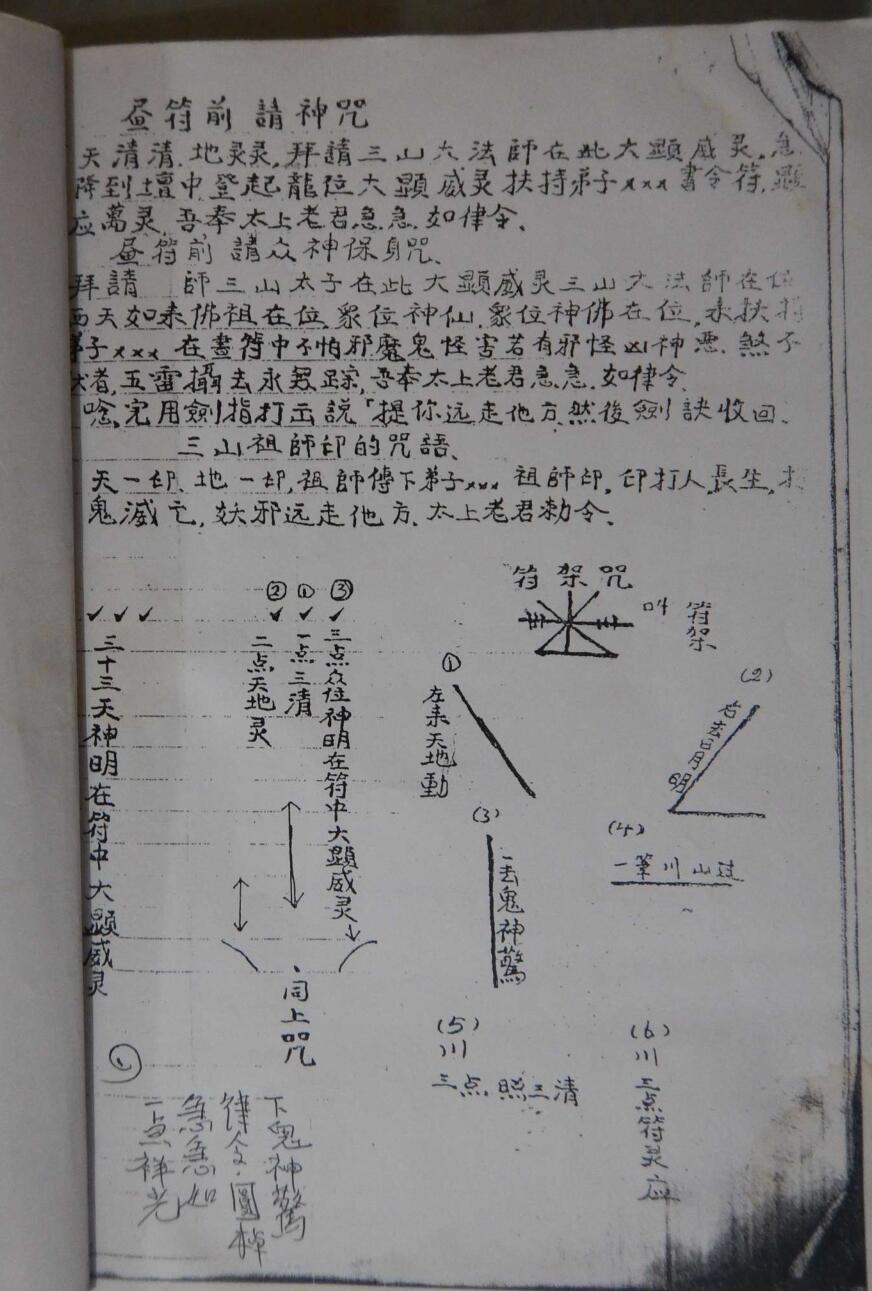 昼符前請神咒
天清清.地灵灵,拜請三山大法師在此大顯威灵.急
降到壇中.登起龍位大顯威灵扶持弟子xxx書令符.顯
应萬灵.吾奉太上老君急急.如律令、
昼符前請众神保身咒、
拜請 師三山太子在此大顯威灵三山大法師在位
西天如来佛祖在位.衆位神仙.衆位神佛在位,来扶持
弟子xxx在畫符中不怕邪魔鬼怪害若有邪怪凶神悪.煞不
者,五雷攝去永無踪,吾奉太上老君急急.如律令
唸完用劍指打出説「提你远走他方.然後劍訣收回、
三山祖師印的咒語、
天一印、地一印,祖師傳下弟子xxx祖師印,印打人長生,打
鬼滅亡,妖邪远走他方、太上老君勅令、
符架咒
叫 符架
①
左来天地動
(2)
右去日月明
(3)
一去鬼神驚
(4)
一筆川山过
(5)
川
三点.照三清
(6)
川
三点符灵应
② ① ③
✓ ✓ ✓
三点众位神明在符中大顯威灵
一点三清
二点天地灵
✓ ✓ ✓
三十三天神明在符中大顯威灵
同上咒
下鬼神驚
律令.圓
急急如
一点祥光